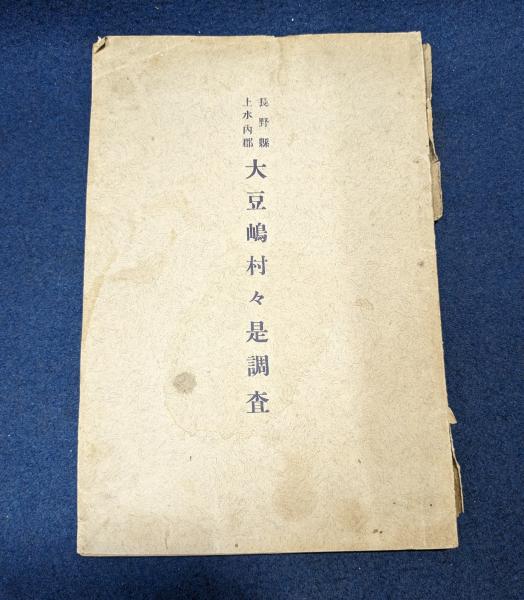 長野縣
上水内郡
大豆嶋村々是調査